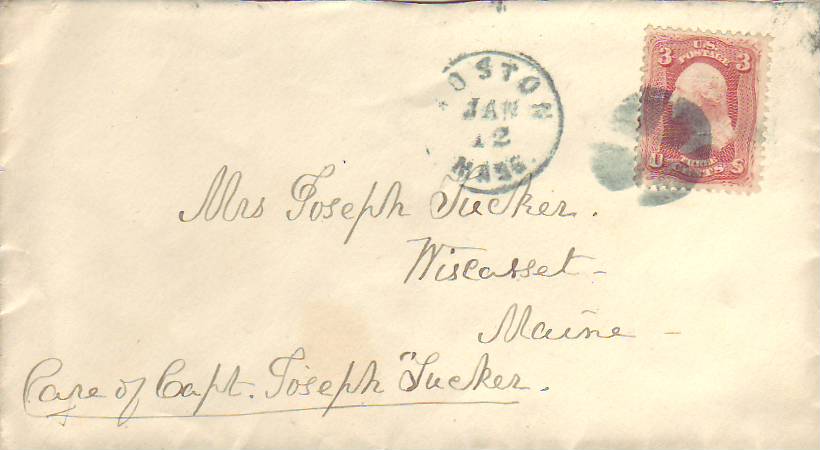 BOSTON
JAN
12
MASS.
3 U.S. POSTAGE 3
U CENTS S
Mrs Joseph Tucker.
Wiscasset -
Maine -
Care of Capt. Joseph Tucker.